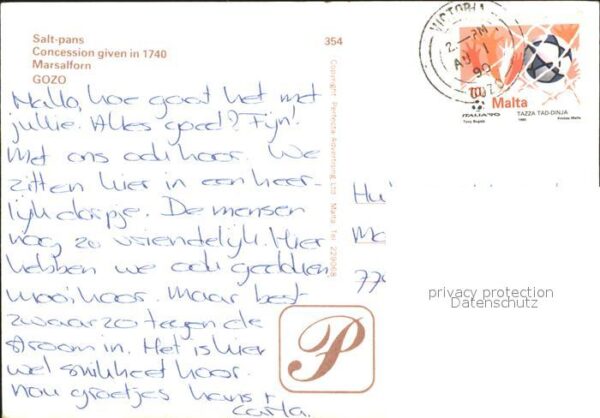 Salt-pans
Concession given in 1740
Marsalforn
GOZO
354
Hallo, hoe gaat het met
jullie. Alles goed? Fijn!
Met ons ook hoor. We
zitten hier in een heer-
lijk dorpje. De mensen
nog zo vriendelijk. Hier
hebben we ook
mooi hoor. Maar best
zwaar zo tegen de
stroom in. Het is hier
wel snikheet hoor.
nou groetjes hans +
carla.
Copyright Perfecta Advertising Ltd. Malta Tel: 229068
P
VICTORIA
2 - PM
AU 1
90
GOZO
ITALIA '90
Malta
TAZZA TAD-DINJA
1990
Hu
Ma
77
privacy protection
Datenschutz